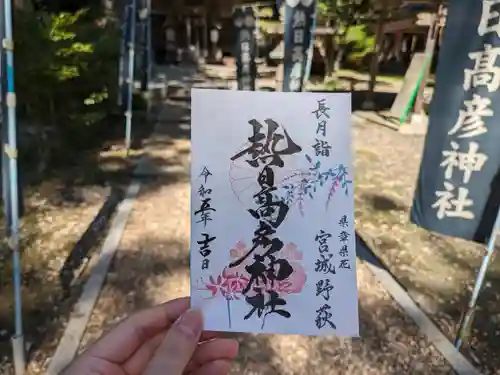 長月詣
熱日高彦神社
令和五年
吉日
県章県花
宮城野萩
日高彦神社
熱日高